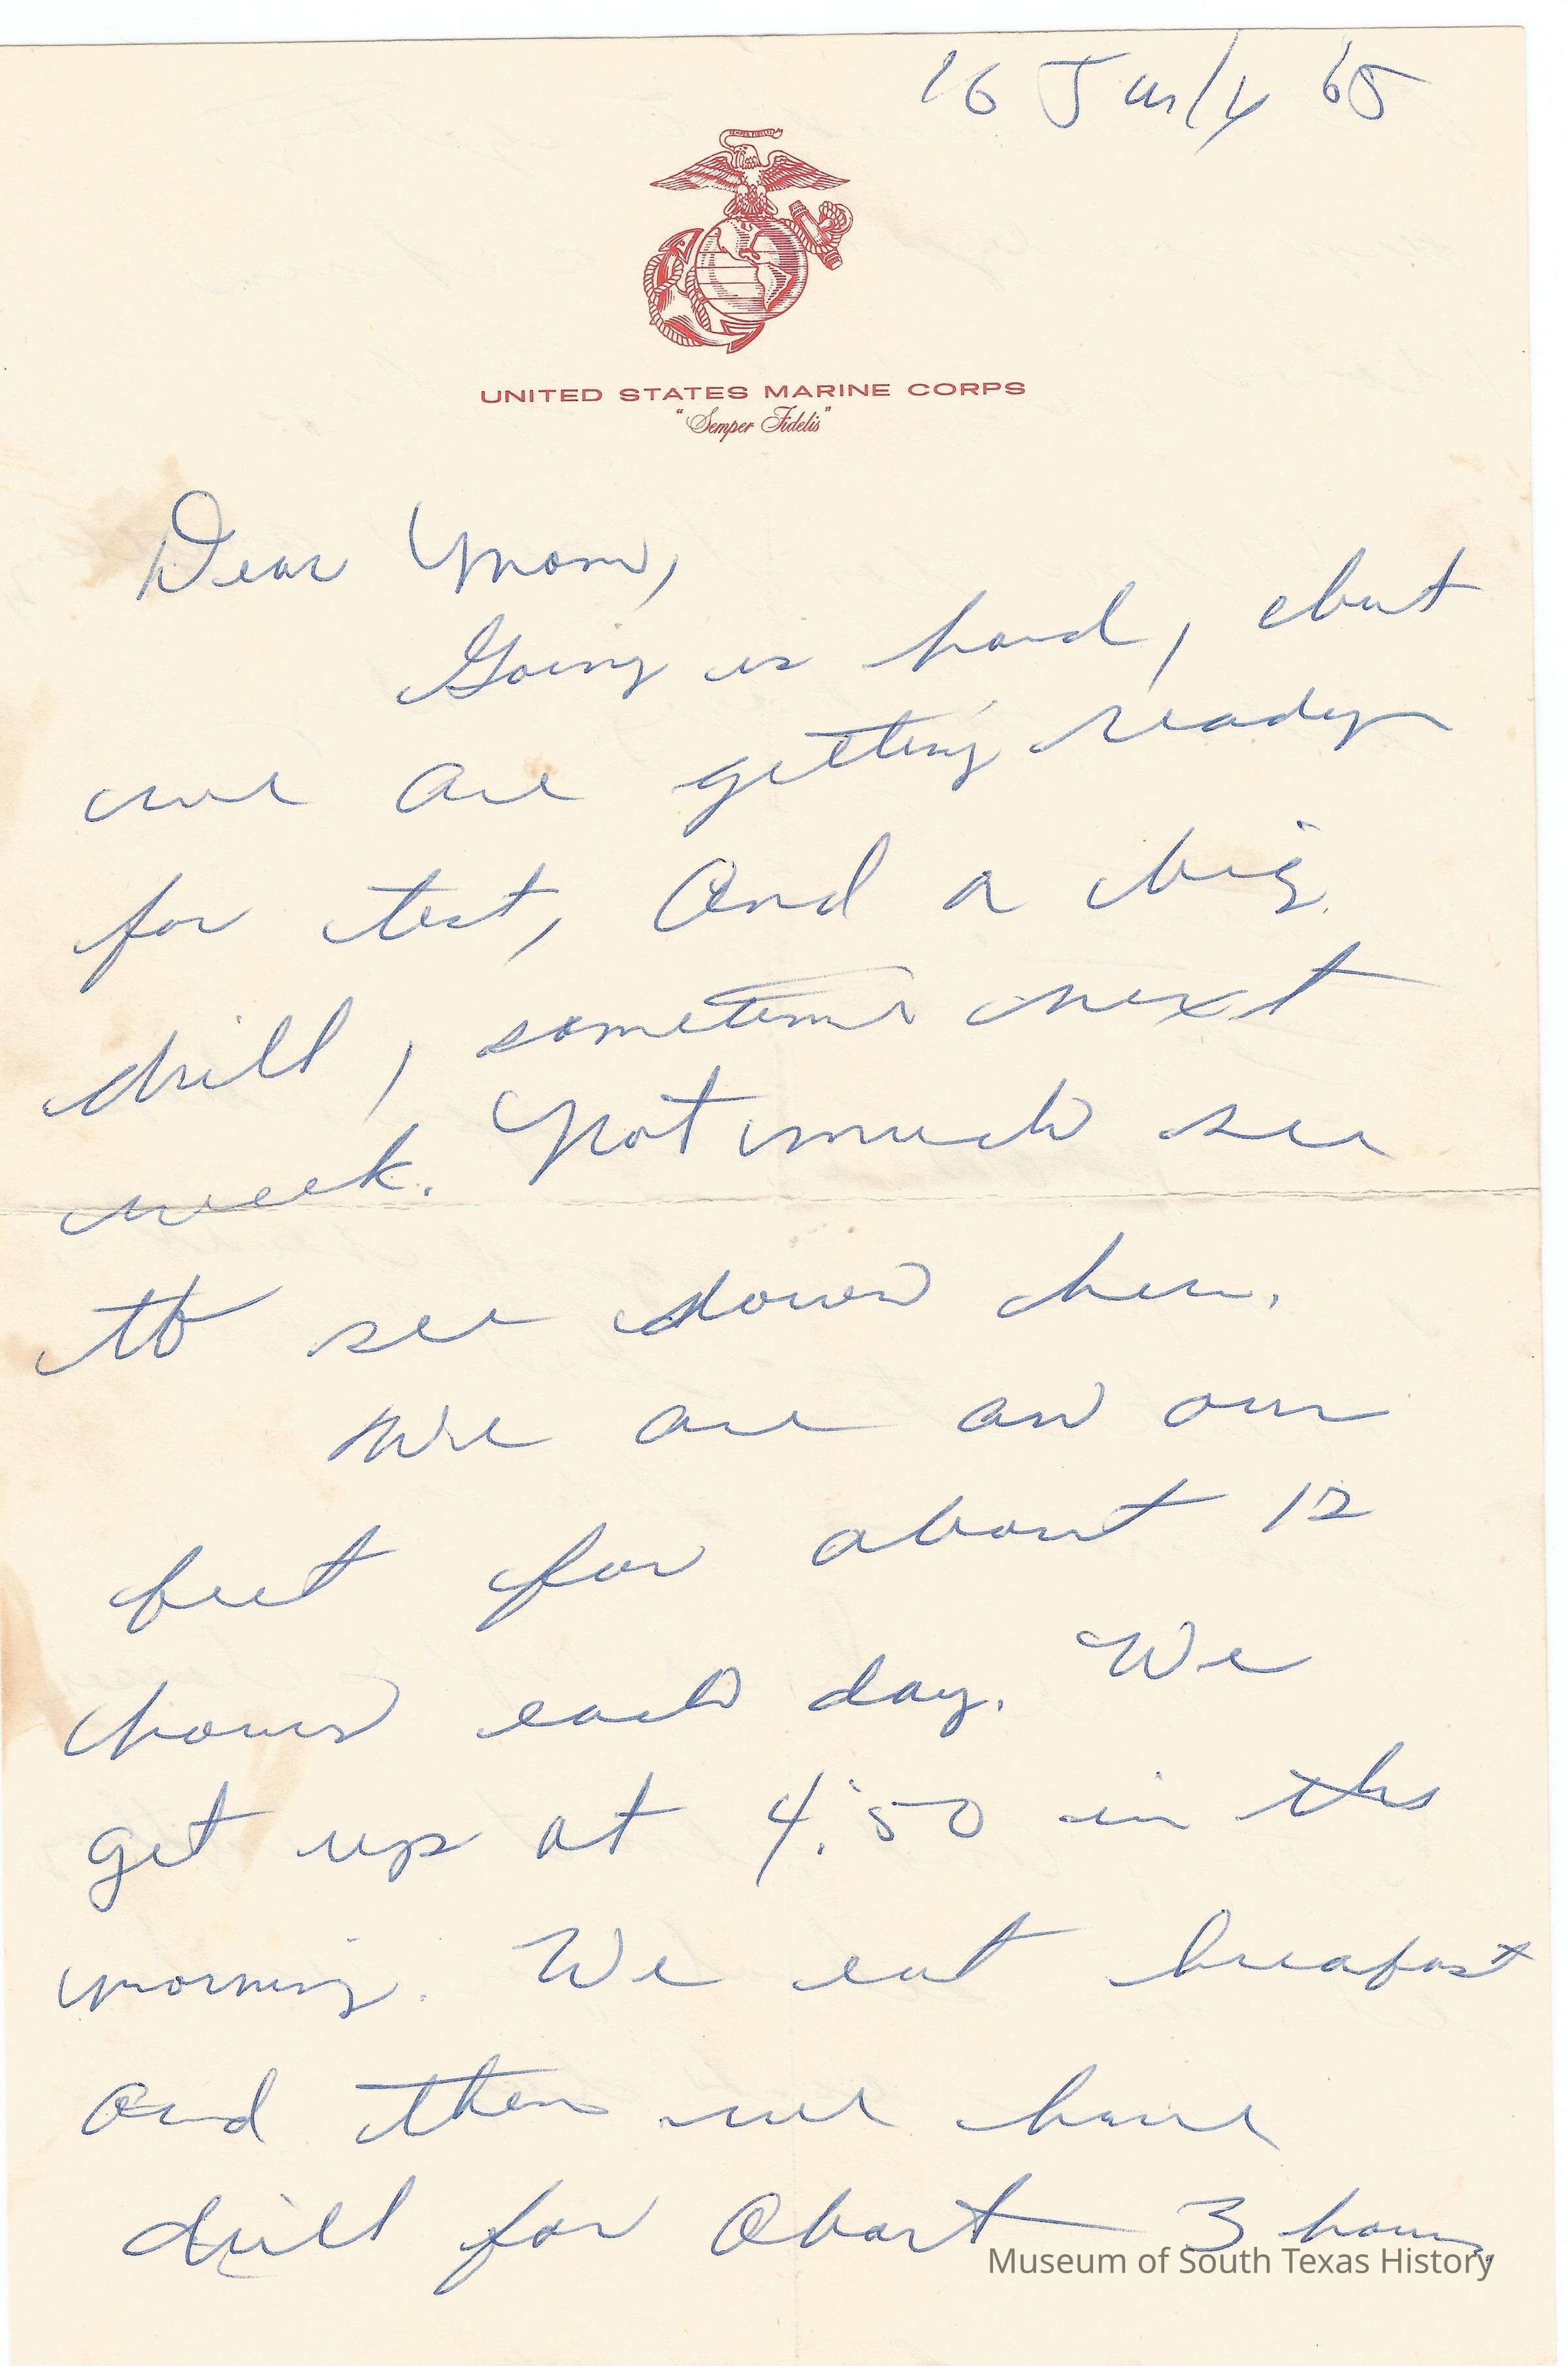 16 July 65
SEMPER FIDELIS
UNITED STATES MARINE CORPS
"Semper Fidelis"
Dear Mom,
Going is hard, but
we are getting ready
for test, And a big
drill, sometime next
week. Not much
to see down here.
We are on our
feet for about 12
hours each day. We
get up at 4:50 in the
morning. We eat breafast
And then we have
drill for About 3 hours,
Museum of South Texas History